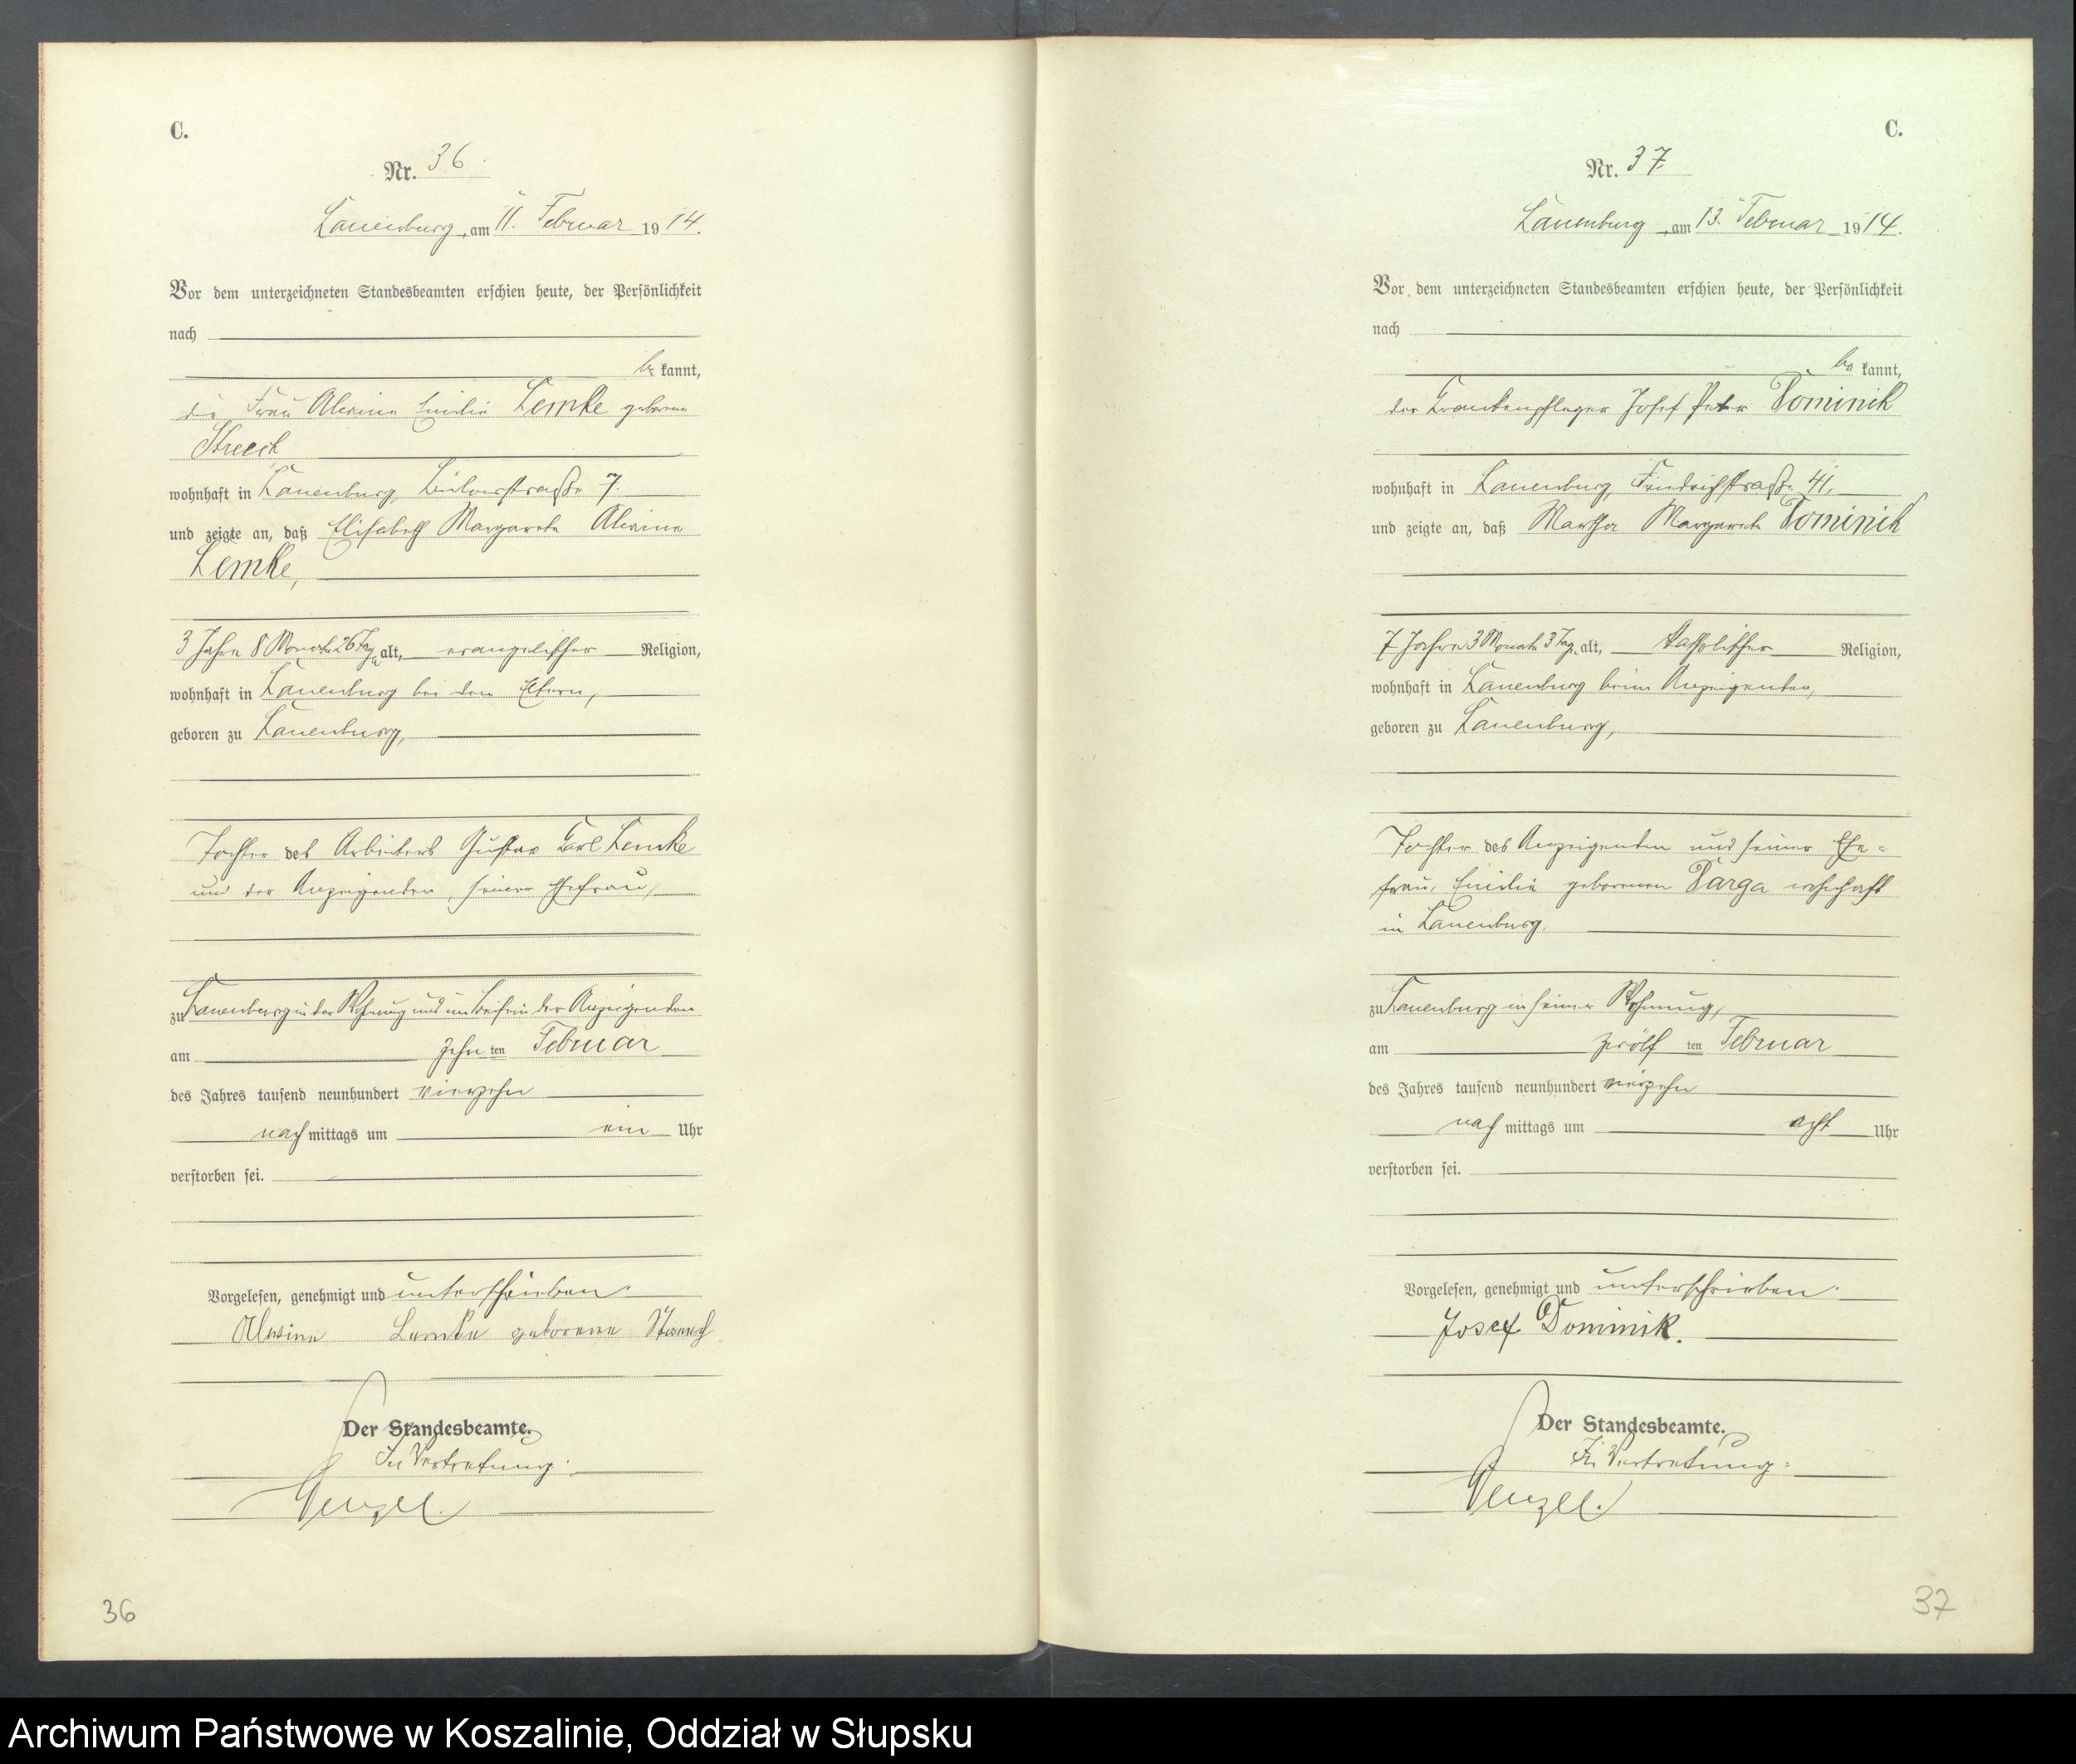 C.
Nr. 36.
Lauenburg, am 11. Februar 1914.
Vor dem unterzeichneten Standesbeamten erschien heute, der Persönlichkeit
nach
be kannt,
die Frau Alwine Emilie Lemke geborene
Streech
wohnhaft in Lauenburg, Bülowstraße 7.
und zeigte an, daß Elisabeth Margarete Alwine
Lemke,
3 Jahre 8 Monate 26 Tage alt, evangelischer Religion,
wohnhaft in Lauenburg bei den Eltern,
geboren zu Lauenburg,
Tochter des Arbeiters Gustav Carl Lemke
und der Anzeigenden, seiner Ehefrau,
zu Lauenburg in der Wohnung und im Beisein der Anzeigenden
am zehn ten Februar
des Jahres tausend neunhundert vierzehn
nach mittags um ein Uhr
verstorben sei.
Vorgelesen, genehmigt und unterschrieben.
Alwine Lemke geborene Streech
Der Standesbeamte.
In Vertretung:
Wenzel.
36
C.
Nr. 37.
Lauenburg, am 13. Februar 1914.
Vor dem unterzeichneten Standesbeamten erschien heute, der Persönlichkeit
nach
be kannt,
der Krankenpfleger Josef Peter Dominik
wohnhaft in Lauenburg, Friedrichstraße 41,
und zeigte an, daß Martha Margarete Dominik
7 Jahre 3 Monate 3 Tage alt, katholischer Religion,
wohnhaft in Lauenburg beim Anzeigenden,
geboren zu Lauenburg,
Tochter des Anzeigenden und seiner Ehe=
frau, Emilie geborenen Darga wohnhaft
in Lauenburg,
zu Lauenburg in seiner Wohnung,
am zwölf ten Februar
des Jahres tausend neunhundert vierzehn
nach mittags um acht Uhr
verstorben sei.
Vorgelesen, genehmigt und unterschrieben.
Josef Dominik.
Der Standesbeamte.
In Vertretung:
Wenzel.
37
Archiwum Państwowe w Koszalinie, Oddział w Słupsku